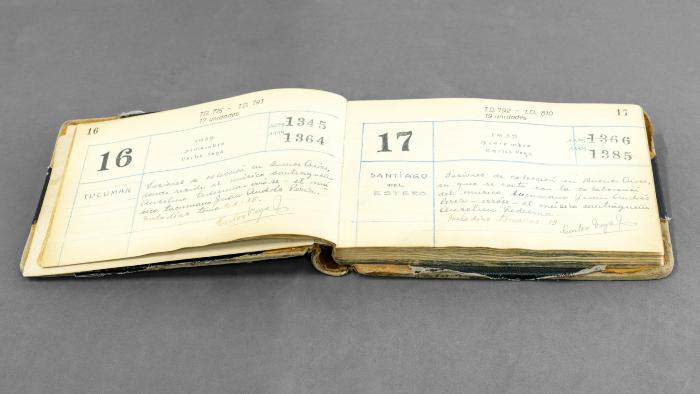 16
T.D. 775 - T.D. 791
17 unidades
16
1939
Diciembre
Carlos Vega
1345
1364
TUCUMAN
Sesiones de colección en Buenos Aires,
donde reside el músico santiagueño
músico tucumano Juan Andrés Perea.
Carlos Vega
T.D. 792 - T.D. 810
19 unidades
17
17
1939
Diciembre
Carlos Vega
1366
1385
SANTIAGO
DEL
ESTERO
Sesiones de colección en Buenos Aires,
en que se contó con la colaboración
del músico tucumano Juan Andrés
Perea - errose - el músico santiagueño
Aureliano Ledesma.
Melodías tomadas: 19
Carlos Vega